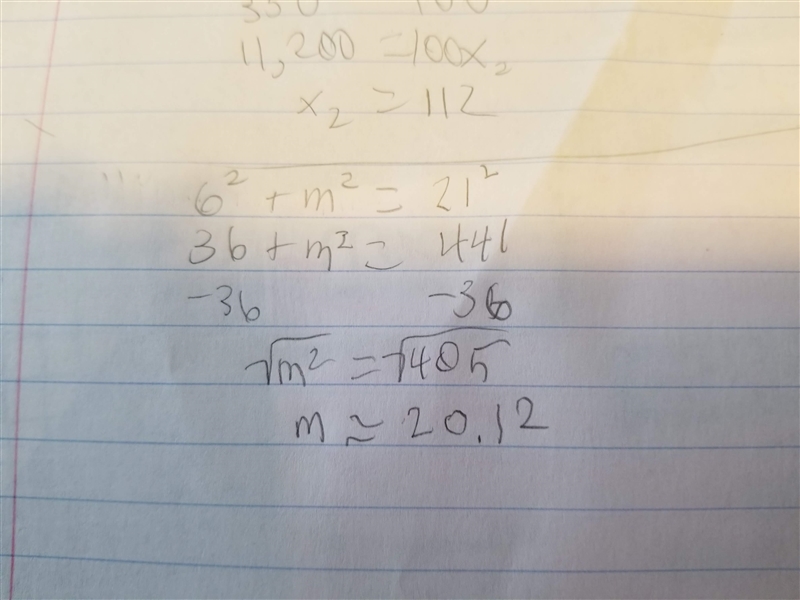 350 100
11,200 = 100x₂
x₂ = 112
6² + m² = 21²
36 + m² = 441
-36 -36
√m² = √405
m ≈ 20.12